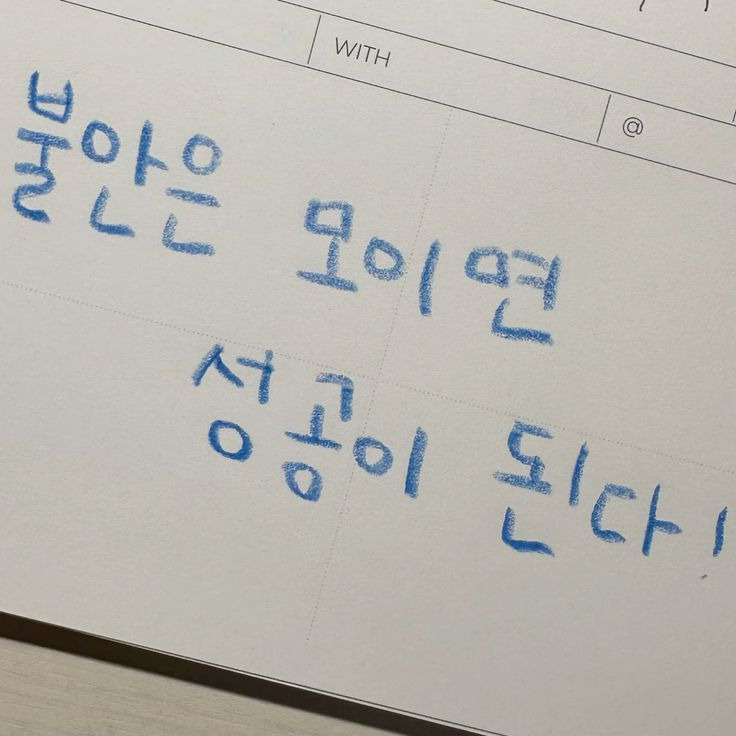 WITH
@
불안은 모이면
성공이 된다!